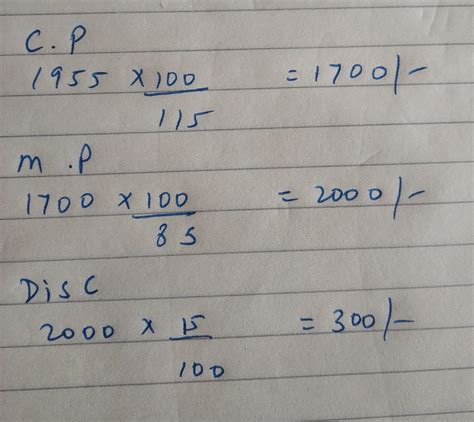 C.P
1955 × 100/115 = 1700/-
M.P
1700 × 100/85 = 2000/-
Disc
2000 × 15/100 = 300/-